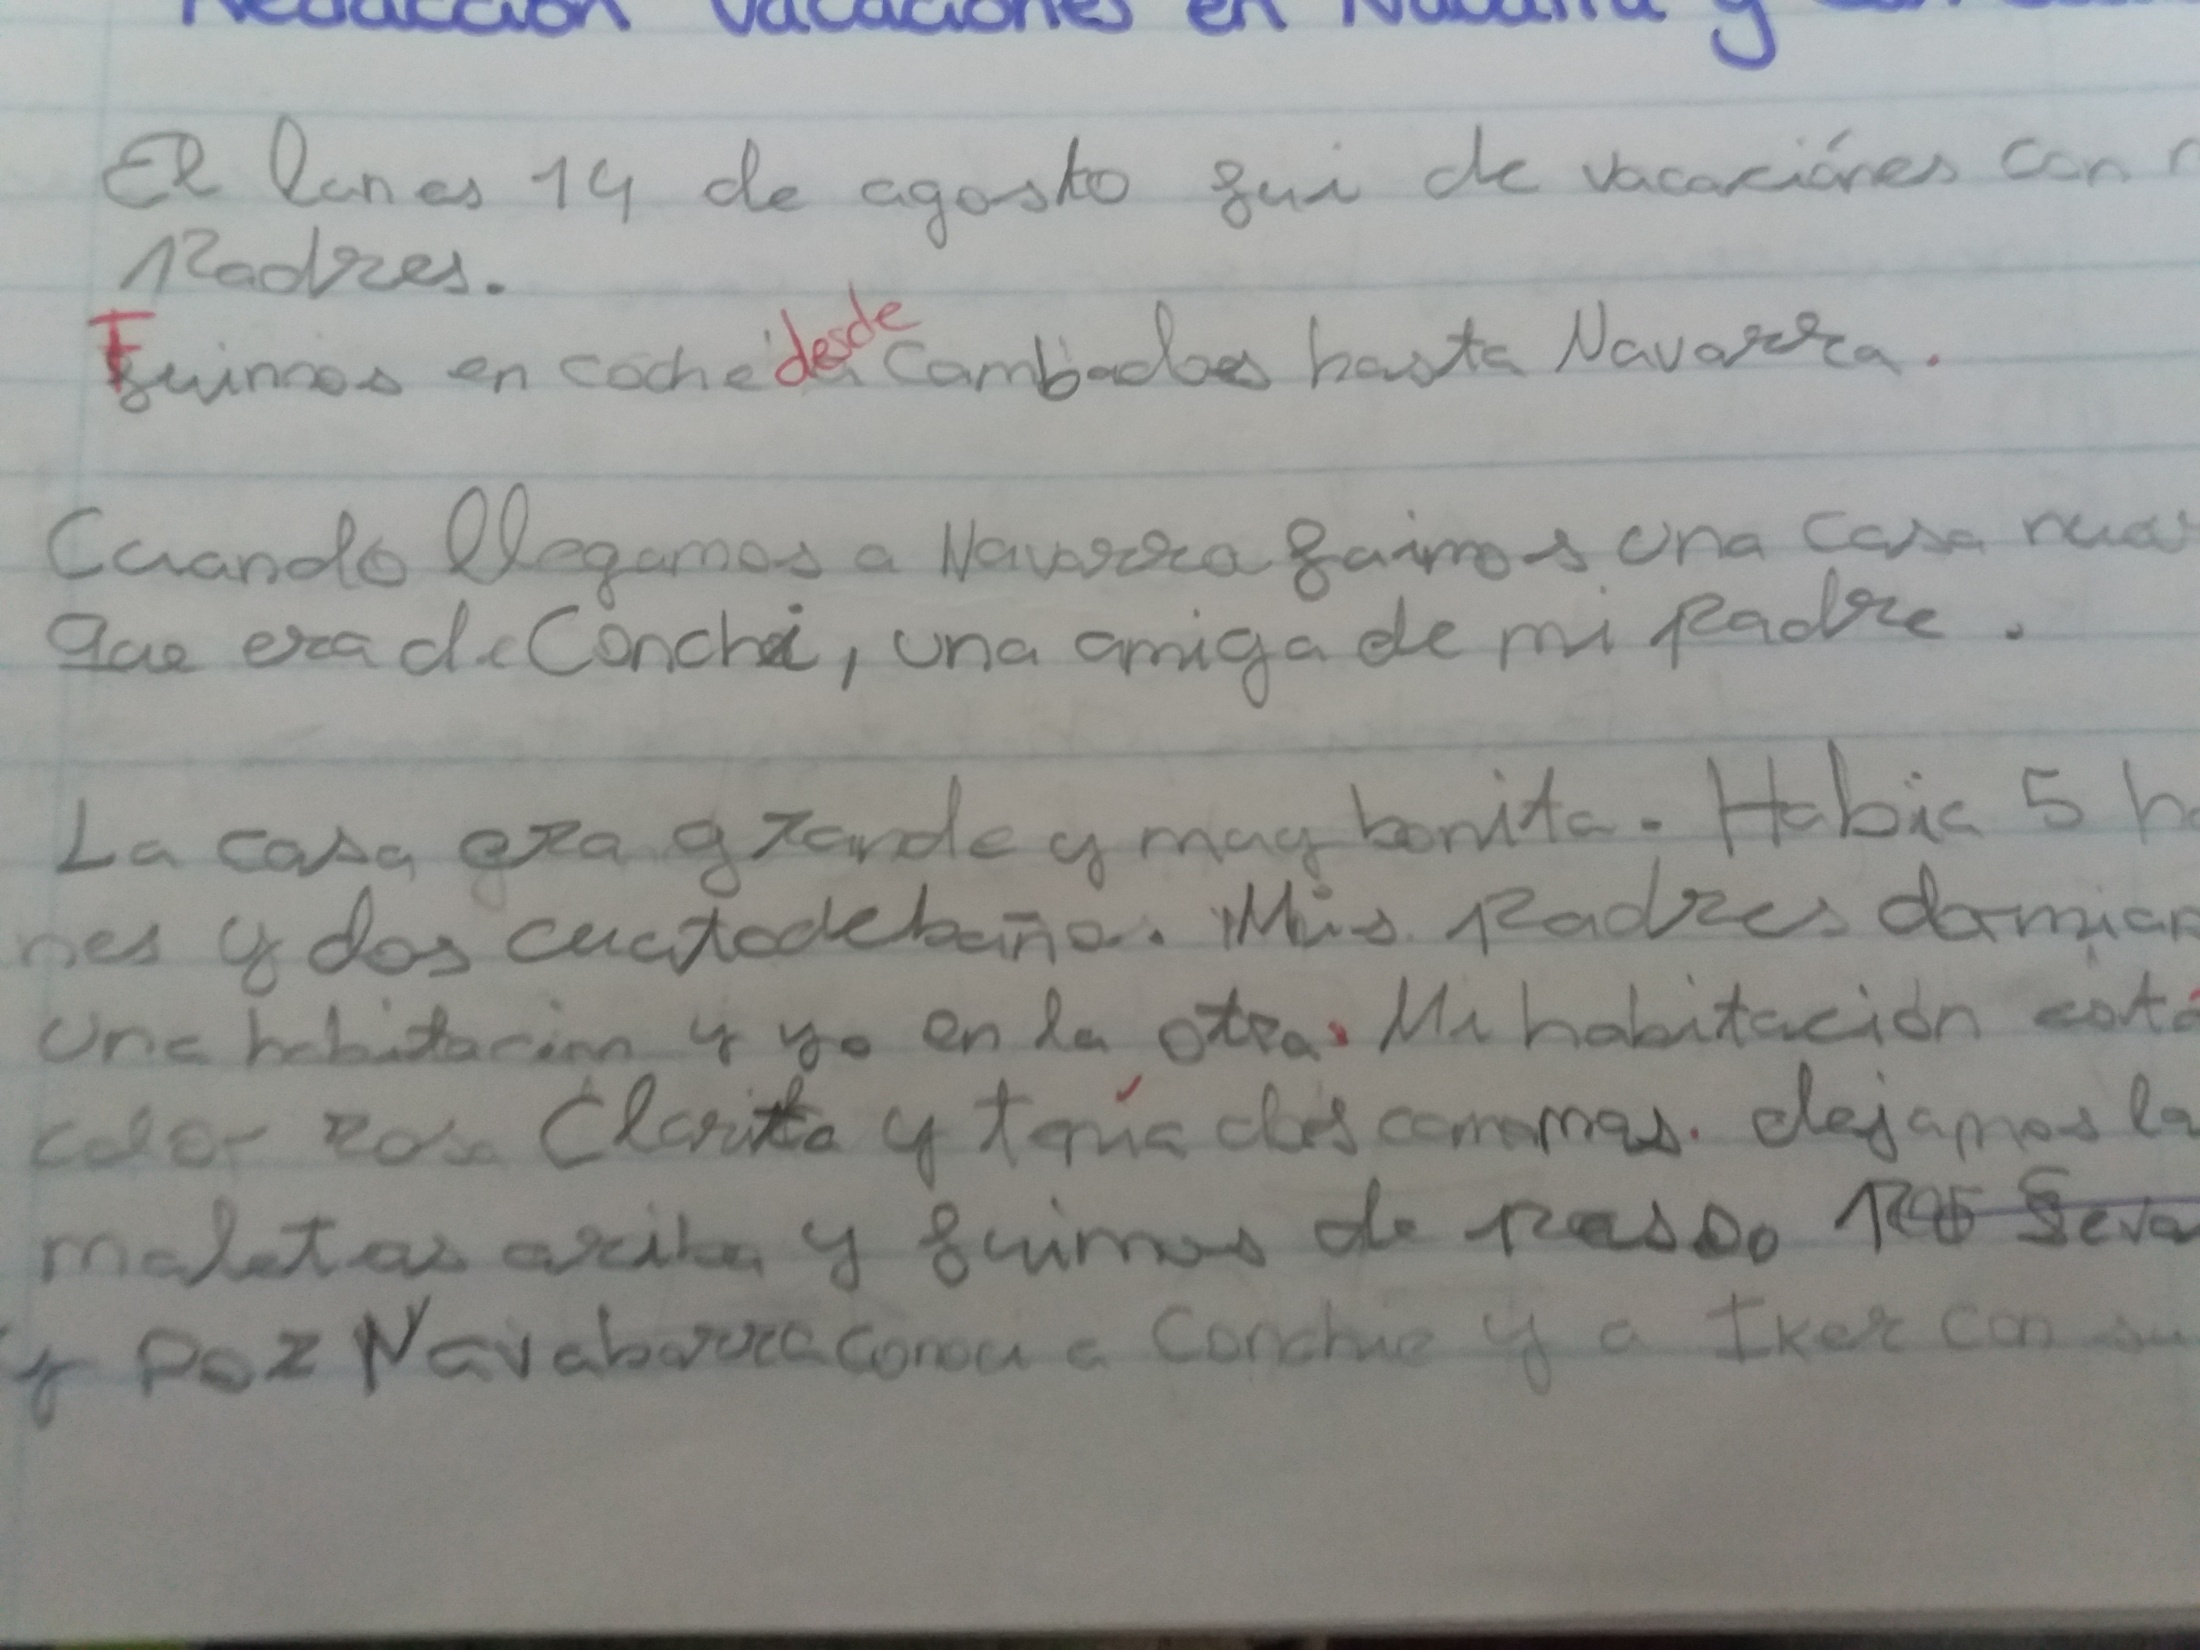 Redacción vacaciones en Navarra y
El lunes 14 de agosto fui de vacaciónes con
Padres.
Fuimos en coche desde Cambados hasta Navarra.
Cuando llegamos a Navarra fuimos una casa
que era de Conchi, una amiga de mi padre.
La casa era grande y muy bonita. Habia 5
nes y dos cuartodebaño. Mis padres
una habitacion y yo en la otra. Mi habitación
color rosa Clarita y tenía dos cammas. dejamos la
maletas ariba y fuimos de passo
y por Navabarra conoci a Conchi y a Iker con su